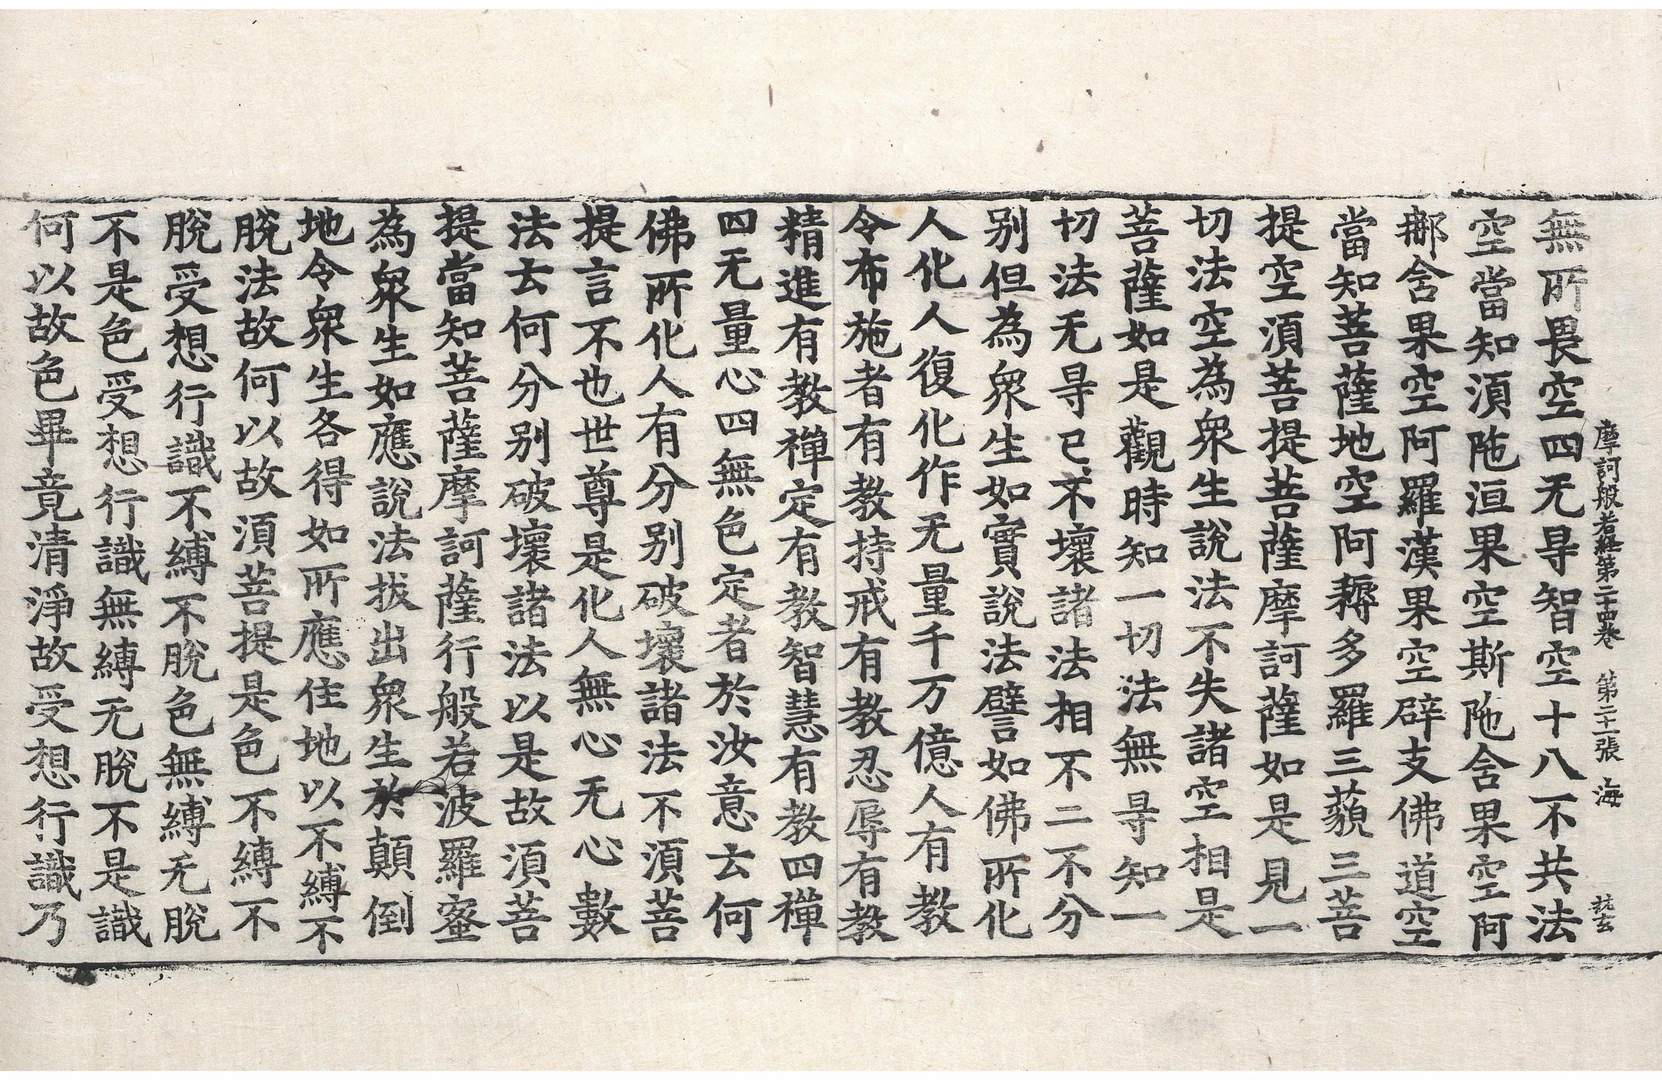 摩訶般若經第二十四卷 第二十二張 海
無所畏空四无㝵智空十八不共法
空當知須陁洹果空斯陁含果空阿
那含果空阿羅漢果空辟支佛道空
當知菩薩地空阿耨多羅三藐三菩
提空須菩提菩薩摩訶薩如是見一
切法空為衆生說法不失諸空相是
菩薩如是觀時知一切法無㝵知一
切法无㝵已不壞諸法相不二不分
別但為衆生如實說法譬如佛所化
人化人復化作无量千万億人有教
令布施者有教持戒有教忍辱有教
精進有教禪定有教智慧有教四禪
四无量心四無色定者於汝意云何
佛所化人有分別破壞諸法不須菩
提言不也世尊是化人無心无心數
法云何分別破壞諸法以是故須菩
提當知菩薩摩訶薩行般若波羅蜜
為衆生如應說法拔出衆生於顛倒
地令衆生各得如所應住地以不縛不
脫法故何以故須菩提是色不縛不
脫受想行識不縛不脫色無縛无脫
不是色受想行識無縛无脫不是識
何以故色畢竟清淨故受想行識乃